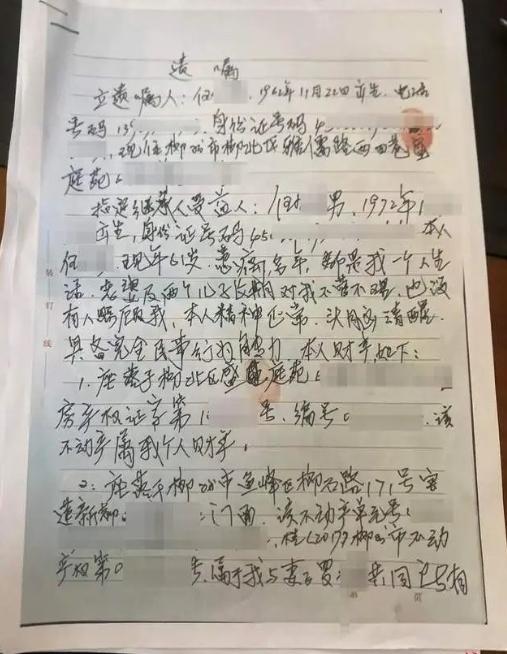 遗嘱
立遗嘱人：任 1962年11月22日出生，电话
号码13 身份证号码4
现住柳州市柳北区雅儒路西
庭苑
指定继承人受益人：任 男，1972年1
出生，身份证号码45 本人
任 现年61岁，患病多年，都是我一个人生
活，老婆及两个儿子长期对我不管不理，也没
有人照顾我，本人精神正常，头脑清醒，
具备完全民事行为能力，本人财产如下：
1、座落于柳北区 庭苑
房产权证字第1 号，编号 该
不动产属我个人财产，
2、座落于柳州市鱼峰区柳石路171号
门面，该不动产单元号
桂(2017)柳州市不动
产权第0 号，属于我与妻子罗 共同
装订线
第 页